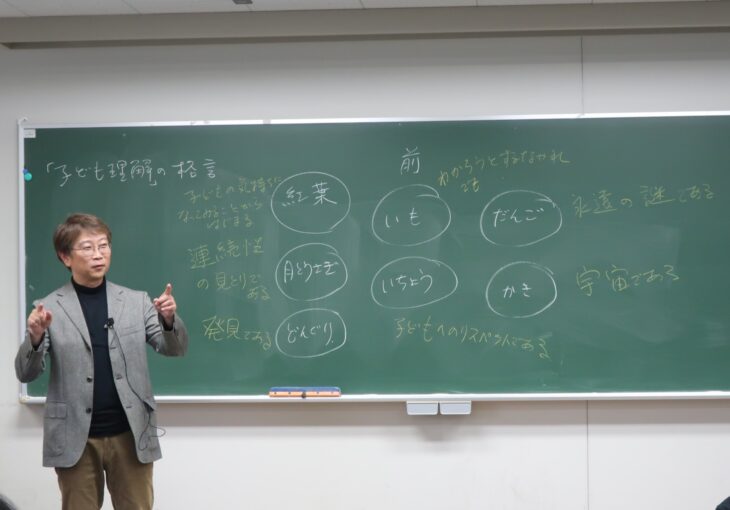 「子ども理解」の格言
前
子どもの気持ちに
なってみることから
はじまる
紅葉
わかろうとするなかれ
いも
だんご
永遠の謎である
連続性
の見とりで
ある
月とうさぎ
いちょう
かき
宇宙である
発見である
どんぐり
子どもへのリスペクトである